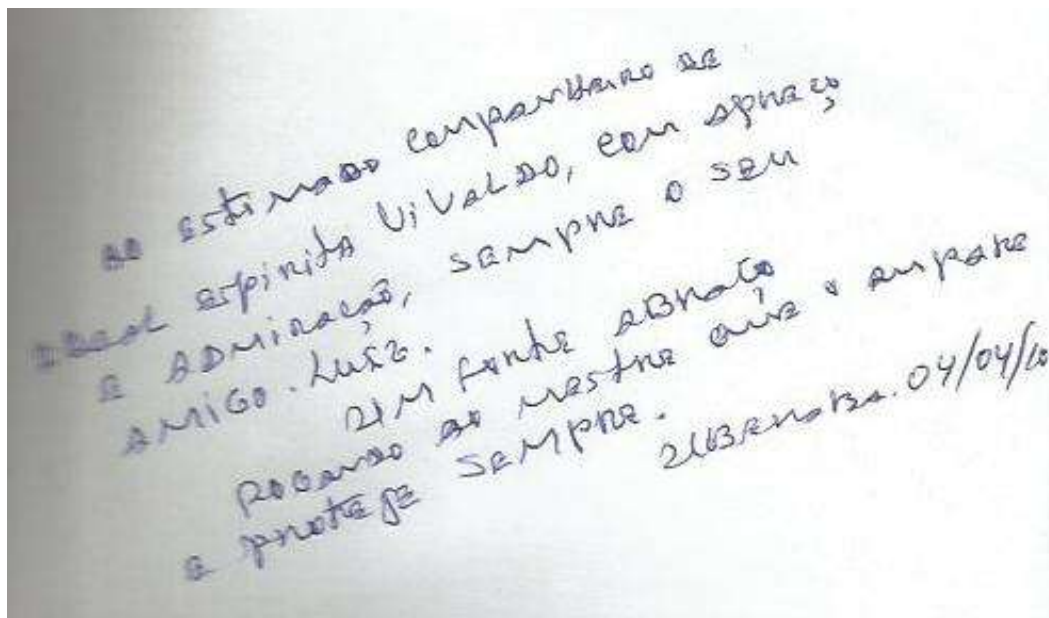 ao estimado companheiro de
ideal espirita Vivaldo, com apreço
e admiração, sempre o seu
amigo. Luiz.
um forte abraço
rogando ao mestre que o ampare
e proteje sempre.
Uberaba. 04/04/10